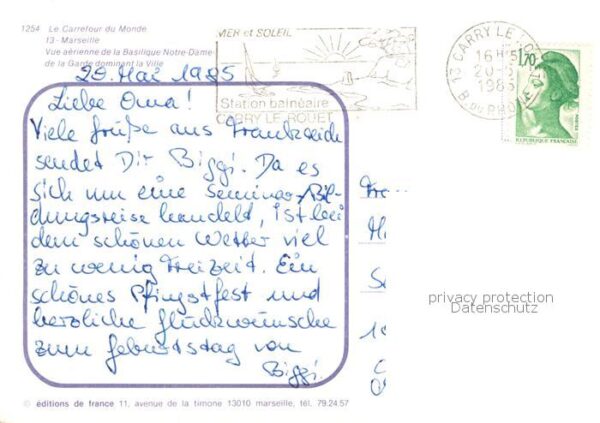 1254 Le Carrefour du Monde
13 - Marseille
Vue aérienne de la Basilique Notre-Dame
de la Garde dominant la Ville
MER et SOLEIL
Station balnéaire
CARRY LE ROUET
13 CARRY LE ROUET
16H15
20-5
1985
B. DU RHONE
1,70
REPUBLIQUE FRANÇAISE
20. Mai 1985
Liebe Oma!
Viele Grüße aus Frankreich
sendet Dir Biggi. Da es
sich um eine Seminar-/Bil-
dungsreise handelt, ist bei
dem schönen Wetter viel
zu wenig Freizeit. Ein
schönes Pfingstfest und
herzliche Glückwünsche
zum Geburtstag von
Biggi.
privacy protection
Datenschutz
© éditions de france 11, avenue de la timone 13010 marseille, tél. 79.24.57